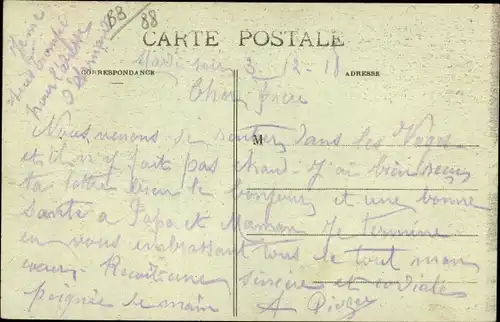 88
88
CARTE POSTALE
CORRESPONDANCE
ADRESSE
Mardi soir 3 12 18
Cher frère
M
Nous venons de rentrer dans les Vosges
et il n'y fait pas chaud. J'ai bien reçu
ta lettre bien le bonjour et une bonne
santé à Papa et Maman Je termine
en vous embrassant tous de tout mon
coeur
sincère et cordiale
poignée de main
A